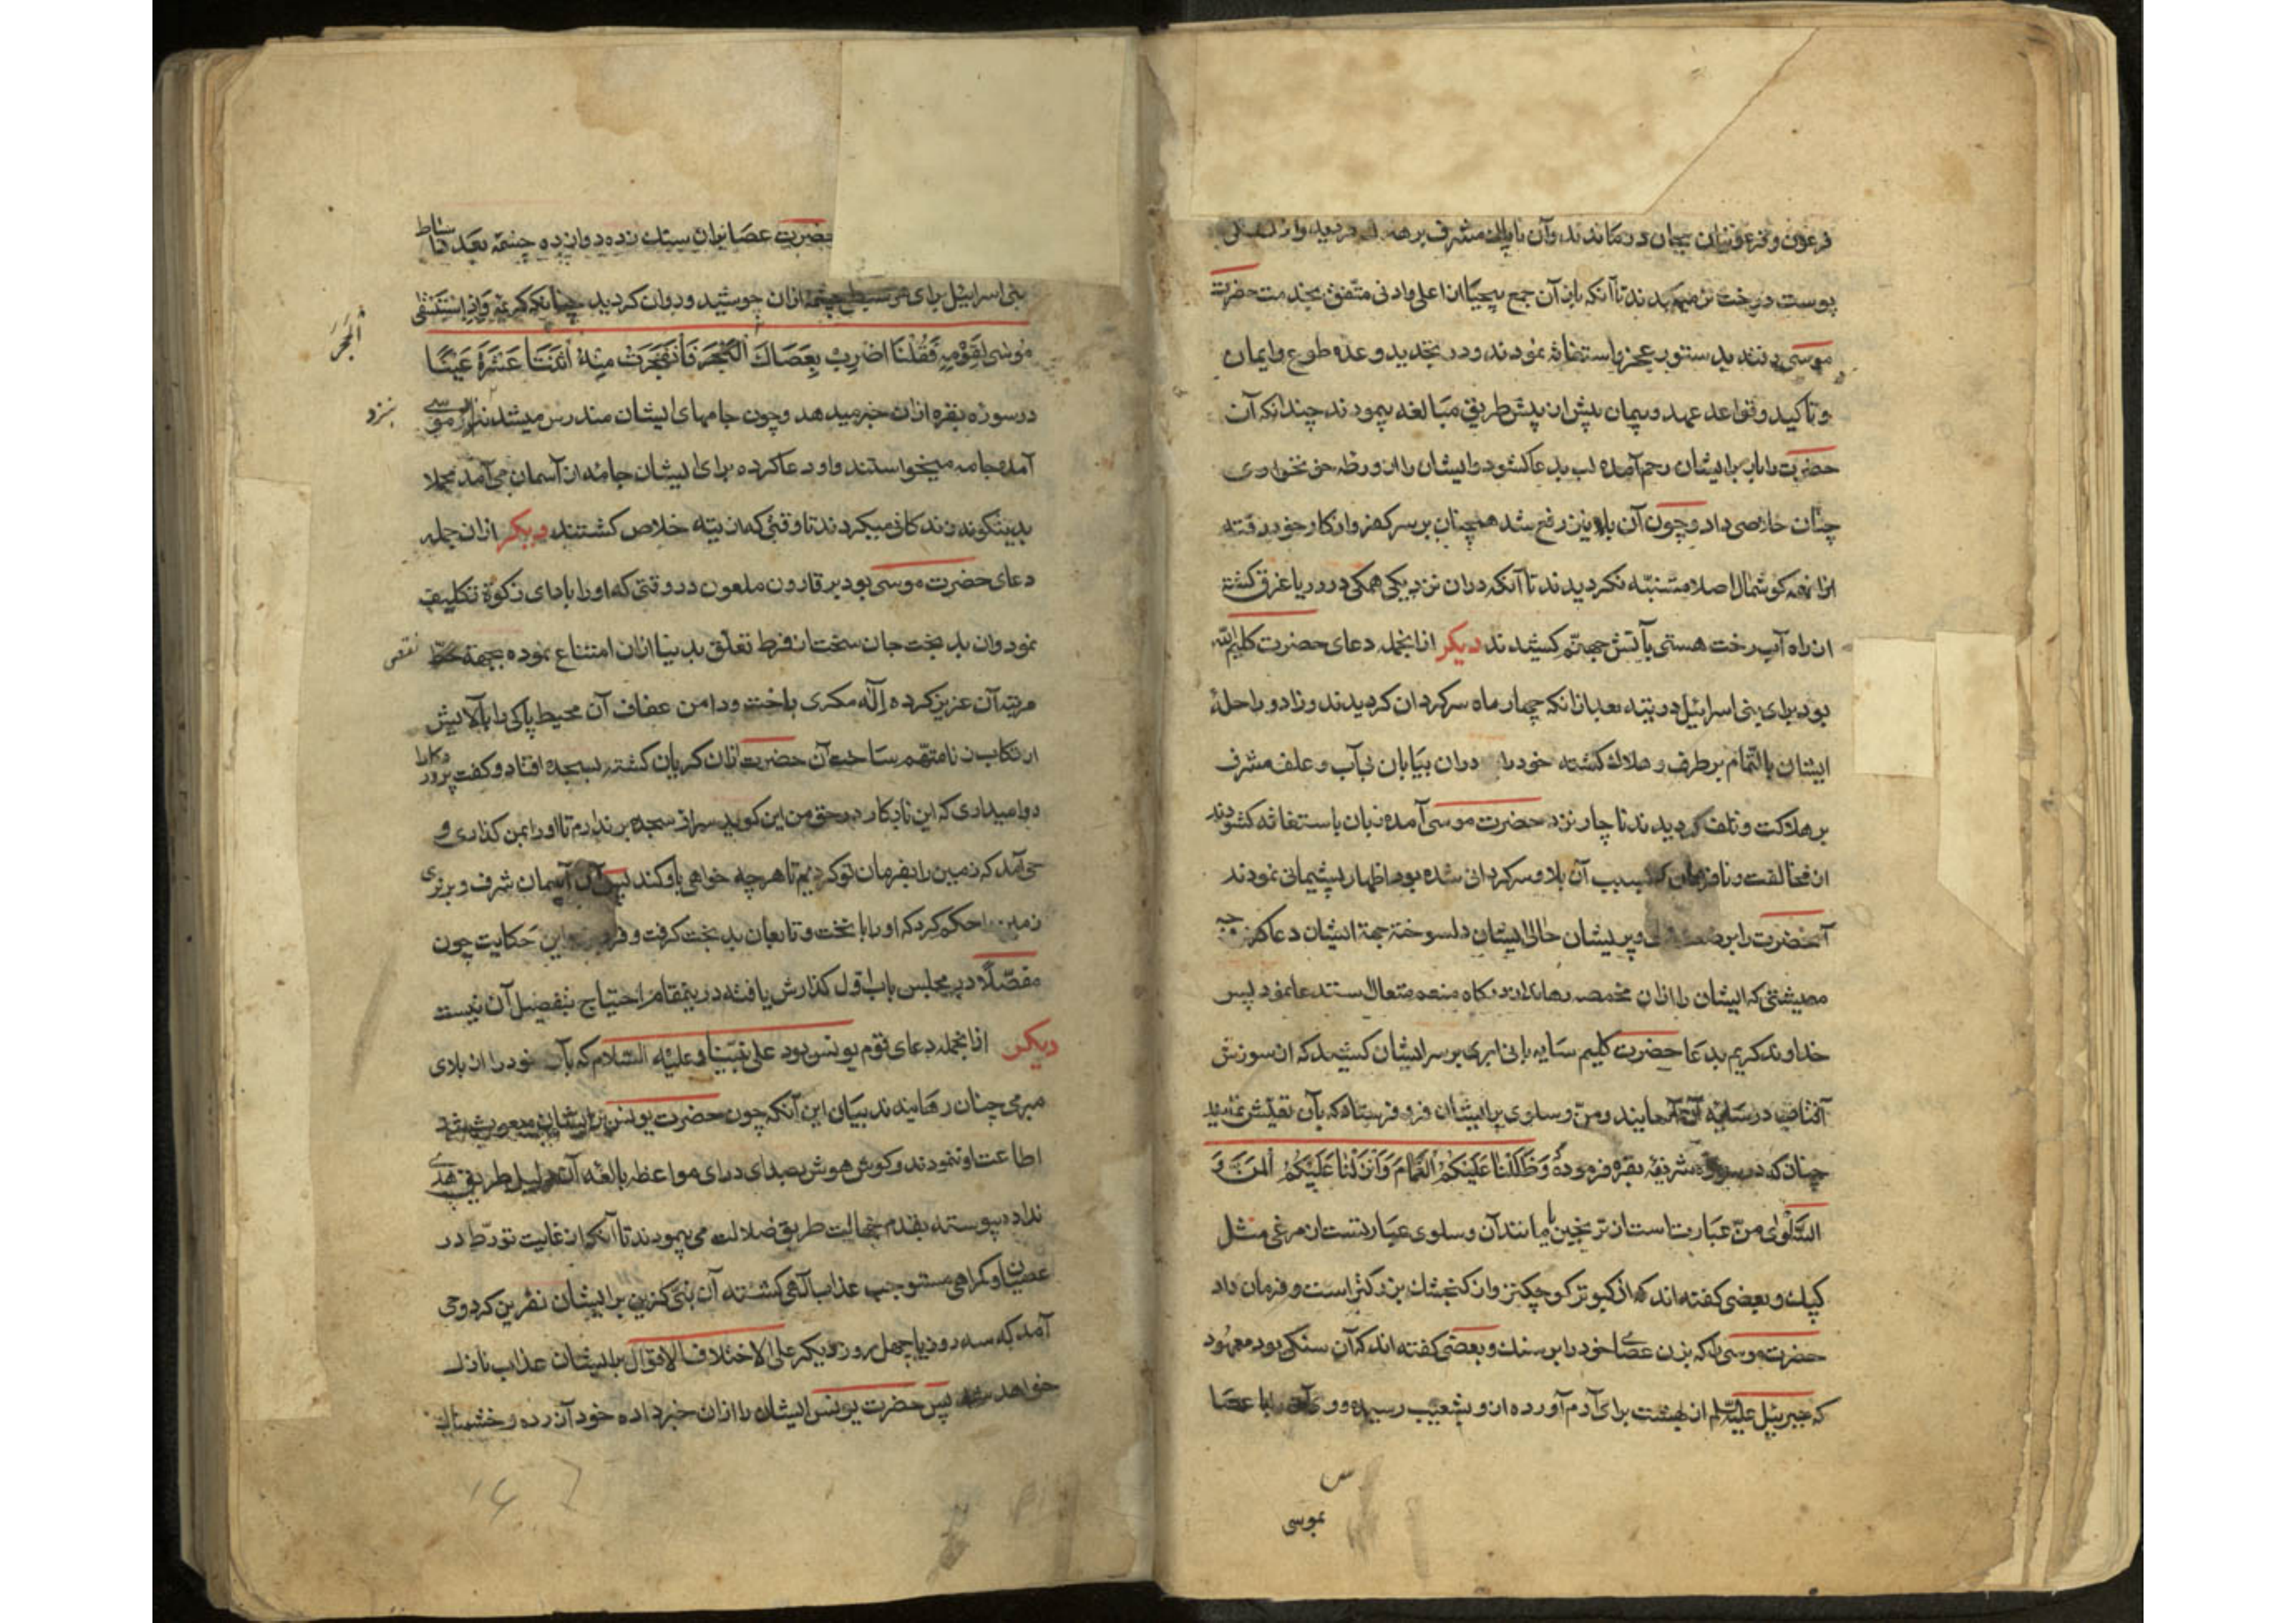 فرعون و فرعونیان بجان درماندند و آن ناپاک مشرف بر
پوست درخت نیز میخوردند تا آنکه باز آن جمع بیحیا از اعلی و ادنی متفق بخدمت حضرت
موسی دستور عجز و استغاثه نمودند و در تجدید وعده طوع و ایمان
و تاکید قواعد عهد و پیمان بیش از پیش طریق مبالغه پیمودند چندانکه آن
حضرت را باز بر ایشان رحم آمده لب بدعا کشود و ایشان را از ورطه خونخواری
چنان خلاصی داد و چون آن بلا نیز رفع شد همچنان بر سر کفر و انکار خود رفته
از انهمه کوشمال اصلا متنبّه نکردیدند تا آنکه دران نزدیکی همکی در دریا غرق کشته
از راه آب رخت هستی بآتش جهنّم کشیدند دیکر ازانجمله دعای حضرت کلیم الله
بود برای بنی اسرائیل در تیه بعد ازانکه چهار ماه سرکردان کردیدند و زاد و راحلهٔ
ایشان بالتّمام برطرف و هلاک کشته خود را دران بیابان بی آب و علف مشرف
بر هلاکت و تلف کردیدند ناچار نزد حضرت موسی آمده زبان باستغاثه کشودند
از مخالفت و نافرمانی که سبب آن بلا و سرکردانی شده بود اظهار پشیمانی نمودند
آنحضرت را بر و پریشان حالی ایشان دلسوخته جهة ایشان دعا کرد وجه
معیشتی که ایشان را ازان مخمصه رهاند از درکاه منعم متعال استدعا نمود پس
خداوند کریم بدعا حضرت کلیم سایه بانی ابری بر سر ایشان کشید که از سوزش
آفتاب در سایه آن آسایند و منّ و سلوی بر ایشان فرو فرستاد که بآن تعیّش نمایند
چنان که در سوره شریفهٔ بقره فرموده وَظَلَّلْنَا عَلَیْکُمُ الْغَمَامَ وَاَنْزَلْنَا عَلَیْکُمُ الْمَنَّ وَ
السَّلْوٰی منّ عبارت است از ترنجبین یا مانند آن و سلوی عبارتست از مرغی مثل
کبک و بعضی کفته اند که از کبوتر کوچکتر و از کنجشک بزرکتر است و فرمان داد
حضرت موسی را که بزن عصای خود را بر سنک و بعضی کفته اند که آن سنکی بود معهود
که جبرئیل علیه السلم از بهشت برای آدم آورده از و بشعیب رسیده و وی آنرا با عصا
بموسی
حضرت عصا بران سنک زده دوازده چشمه بعدد اسباط
بنی اسرائیل برای هر سبطی چشمه ازان جوشید و روان کردید چنانکه کریمه وَاِذِ اسْتَسْقٰی
مُوسٰی لِقَوْمِهٖ فَقُلْنَا اضْرِبْ بِعَصَاكَ الْحَجَرَ فَانْفَجَرَتْ مِنْهُ اثْنَتَا عَشْرَةَ عَیْنًا
الْحَجَرَ
در سوره بقره ازان خبر میدهد و چون جامهای ایشان مندرس میشد نزد موسی
نزد
آمده جامه میخواستند و او دعا کرده برای ایشان جامه از آسمان می آمد مجملا
بدینکونه زندکانی میکردند تا وقتی که از تیه خلاص کشتند دیکر ازان جمله
دعای حضرت موسی بود بر قارون ملعون در وقتی که او را بادای زکوة تکلیف
نمود و ان بد بخت جان سخت از فرط تعلّق بدنیا ازان امتناع نموده بجهة
نقص
مرتبه آن عزیز کرده اله مکری باخت و دامن عفاف آن محیط پاکی را بآلایش
ارتکاب زنا متهم ساخت آن حضرت ازان کریان کشته بسجده افتاد و کفت پروردکارا
روا میداری که این نابکار در حق من این کوید سر از سجده برندارم تا او را بمن کذاری و
حی آمد که زمین را بفرمان تو کردیم تا هر چه خواهی باو کند پس آن آسمان شرف و برتری
زمین را حکم کرد که او را با تخت و تابعان بد بخت کرفت و فرو این حکایت چون
مفصّلًا در مجلس باب اول کذارش یافته درینمقام احتیاج بتفصیل آن نیست
دیکر ازانجمله دعای قوم یونس بود علی نبیّنا و علیه السّلام که بآن خود را از بلای
مبرمی چنان رهانیدند بیان این آنکه چون حضرت یونس بر ایشان مبعوث شد
اطاعت او ننمودند و کوش هوش بصدای درای مواعظ بالغه آن دلیل طریق هدی
نداده پیوسته بقدم جهالت طریق ضلالت می پیمودند تا آنکه از غایت تورّط در
عصیان و کمراهی مستوجب عذاب آلهی کشته آن نبی کزین بر ایشان نفرین کرد وحی
آمد که سه روز یا چهل روز دیکر علی الاختلاف الاقوال بر ایشان عذاب نازل
خواهد شد پس حضرت یونس ایشان را ازان خبر داده خود آزرده و خشمناک